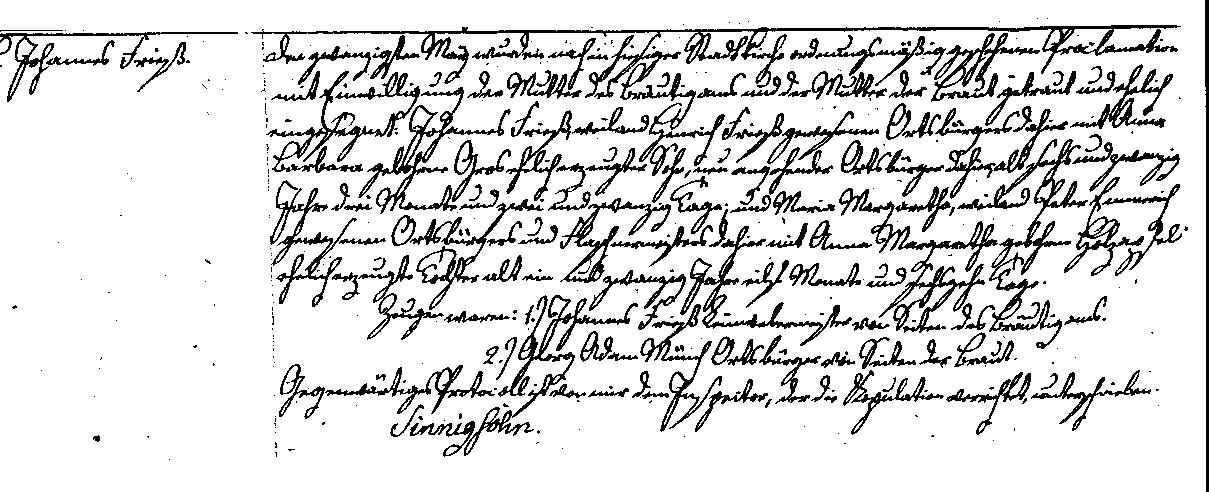 Johannes Frieß.
Den zwanzigsten May wurden nach in hiesiger Stadtkirche ordnungsmäßig geschehenen Proclamation
mit Einwilligung der Mutter des Bräutigams und der Mutter der Braut getraut und ehelich
eingesegnet: Johannes Frieß, weiland Henrich Frieß gewesenen Ortsbürgers dahier mit Anna
Barbara gebohrne Gros ehelich erzeugter Sohn, neu angehender Ortsbürger dahier, alt sechs und zwanzig
Jahre drei Monate und zwei und zwanzig Tage; und Maria Margaretha, weiland Peter Emmerich
gewesenen Ortsbürgers und Flaschnermeisters dahier mit Anna Margaretha gebohrne
ehelich erzeugte Tochter alt ein und zwanzig Jahre eilf Monate und sechszehn Tage.
Zeugen waren: 1.) Johannes Frieß Leinwebermeister von Seiten des Bräutigams.
2.) Georg Adam Münch Ortsbürger von Seiten der Braut.
Gegenwärtiges Protocoll ist von mir dem Inspector, der die Kopulation verrichtet, unterschrieben.
Sinnigsohn.